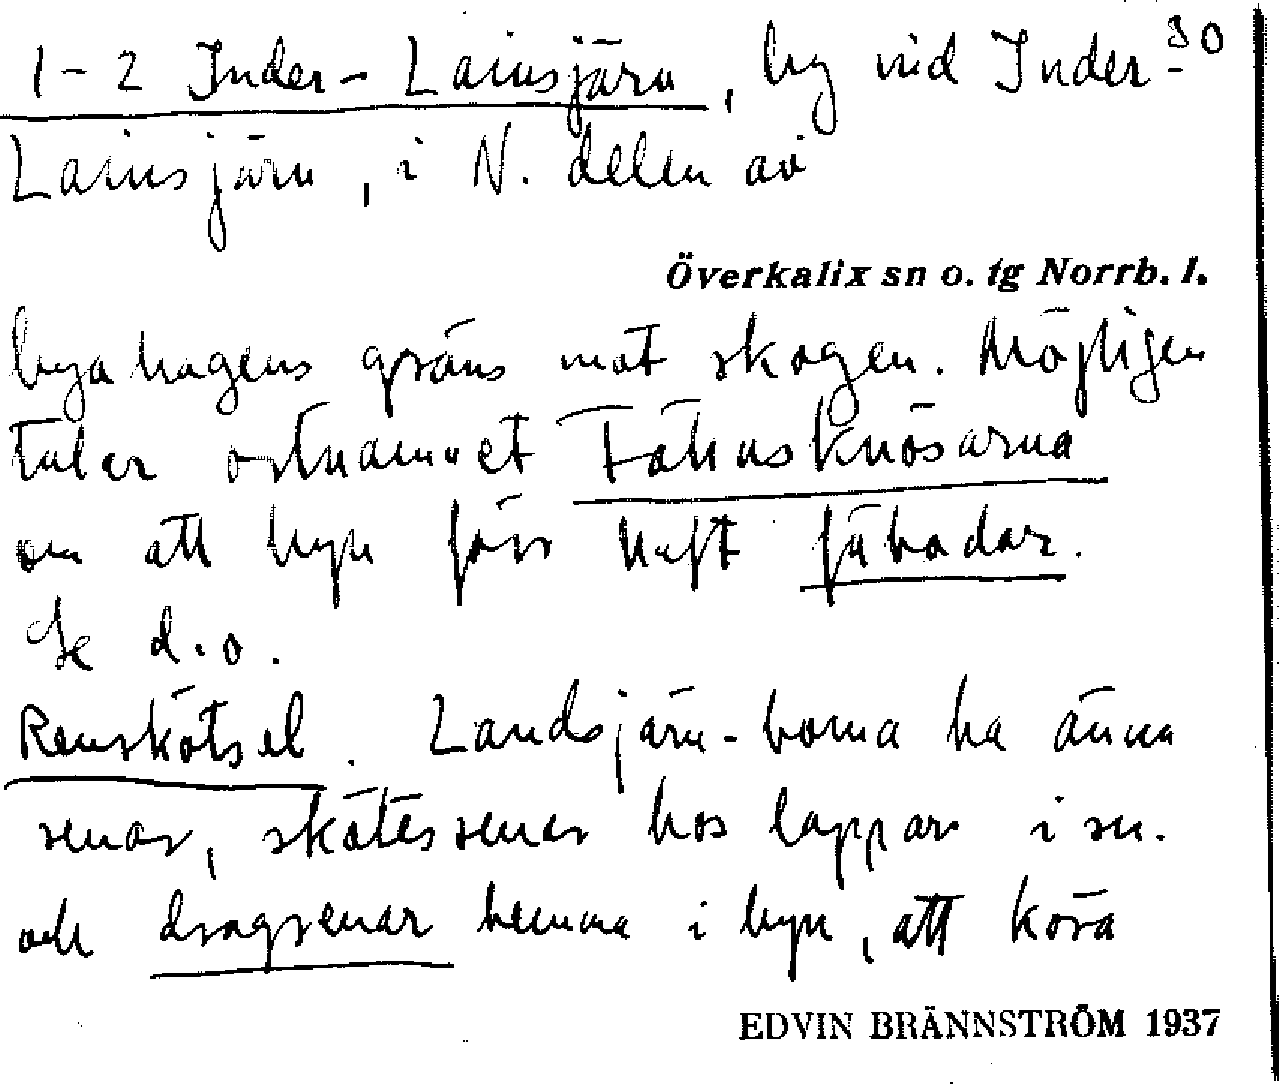 30
1-2 Inder-Lansjärv, by vid Inder-
Lansjärv, i N. delen av
Överkalix sn o. tg Norrb. l.
byahagens gräns mot skogen. Möjligen
talar ortnamnet Fähusknösarna
om att byn förr haft fäbodar.
Se d.o.
Renskötsel. Landsjärv-borna ha ännu
renar, skötesrenar hos lappar i sn.
och dragrenar hemma i byn, att köra
EDVIN BRÄNNSTRÖM 1937